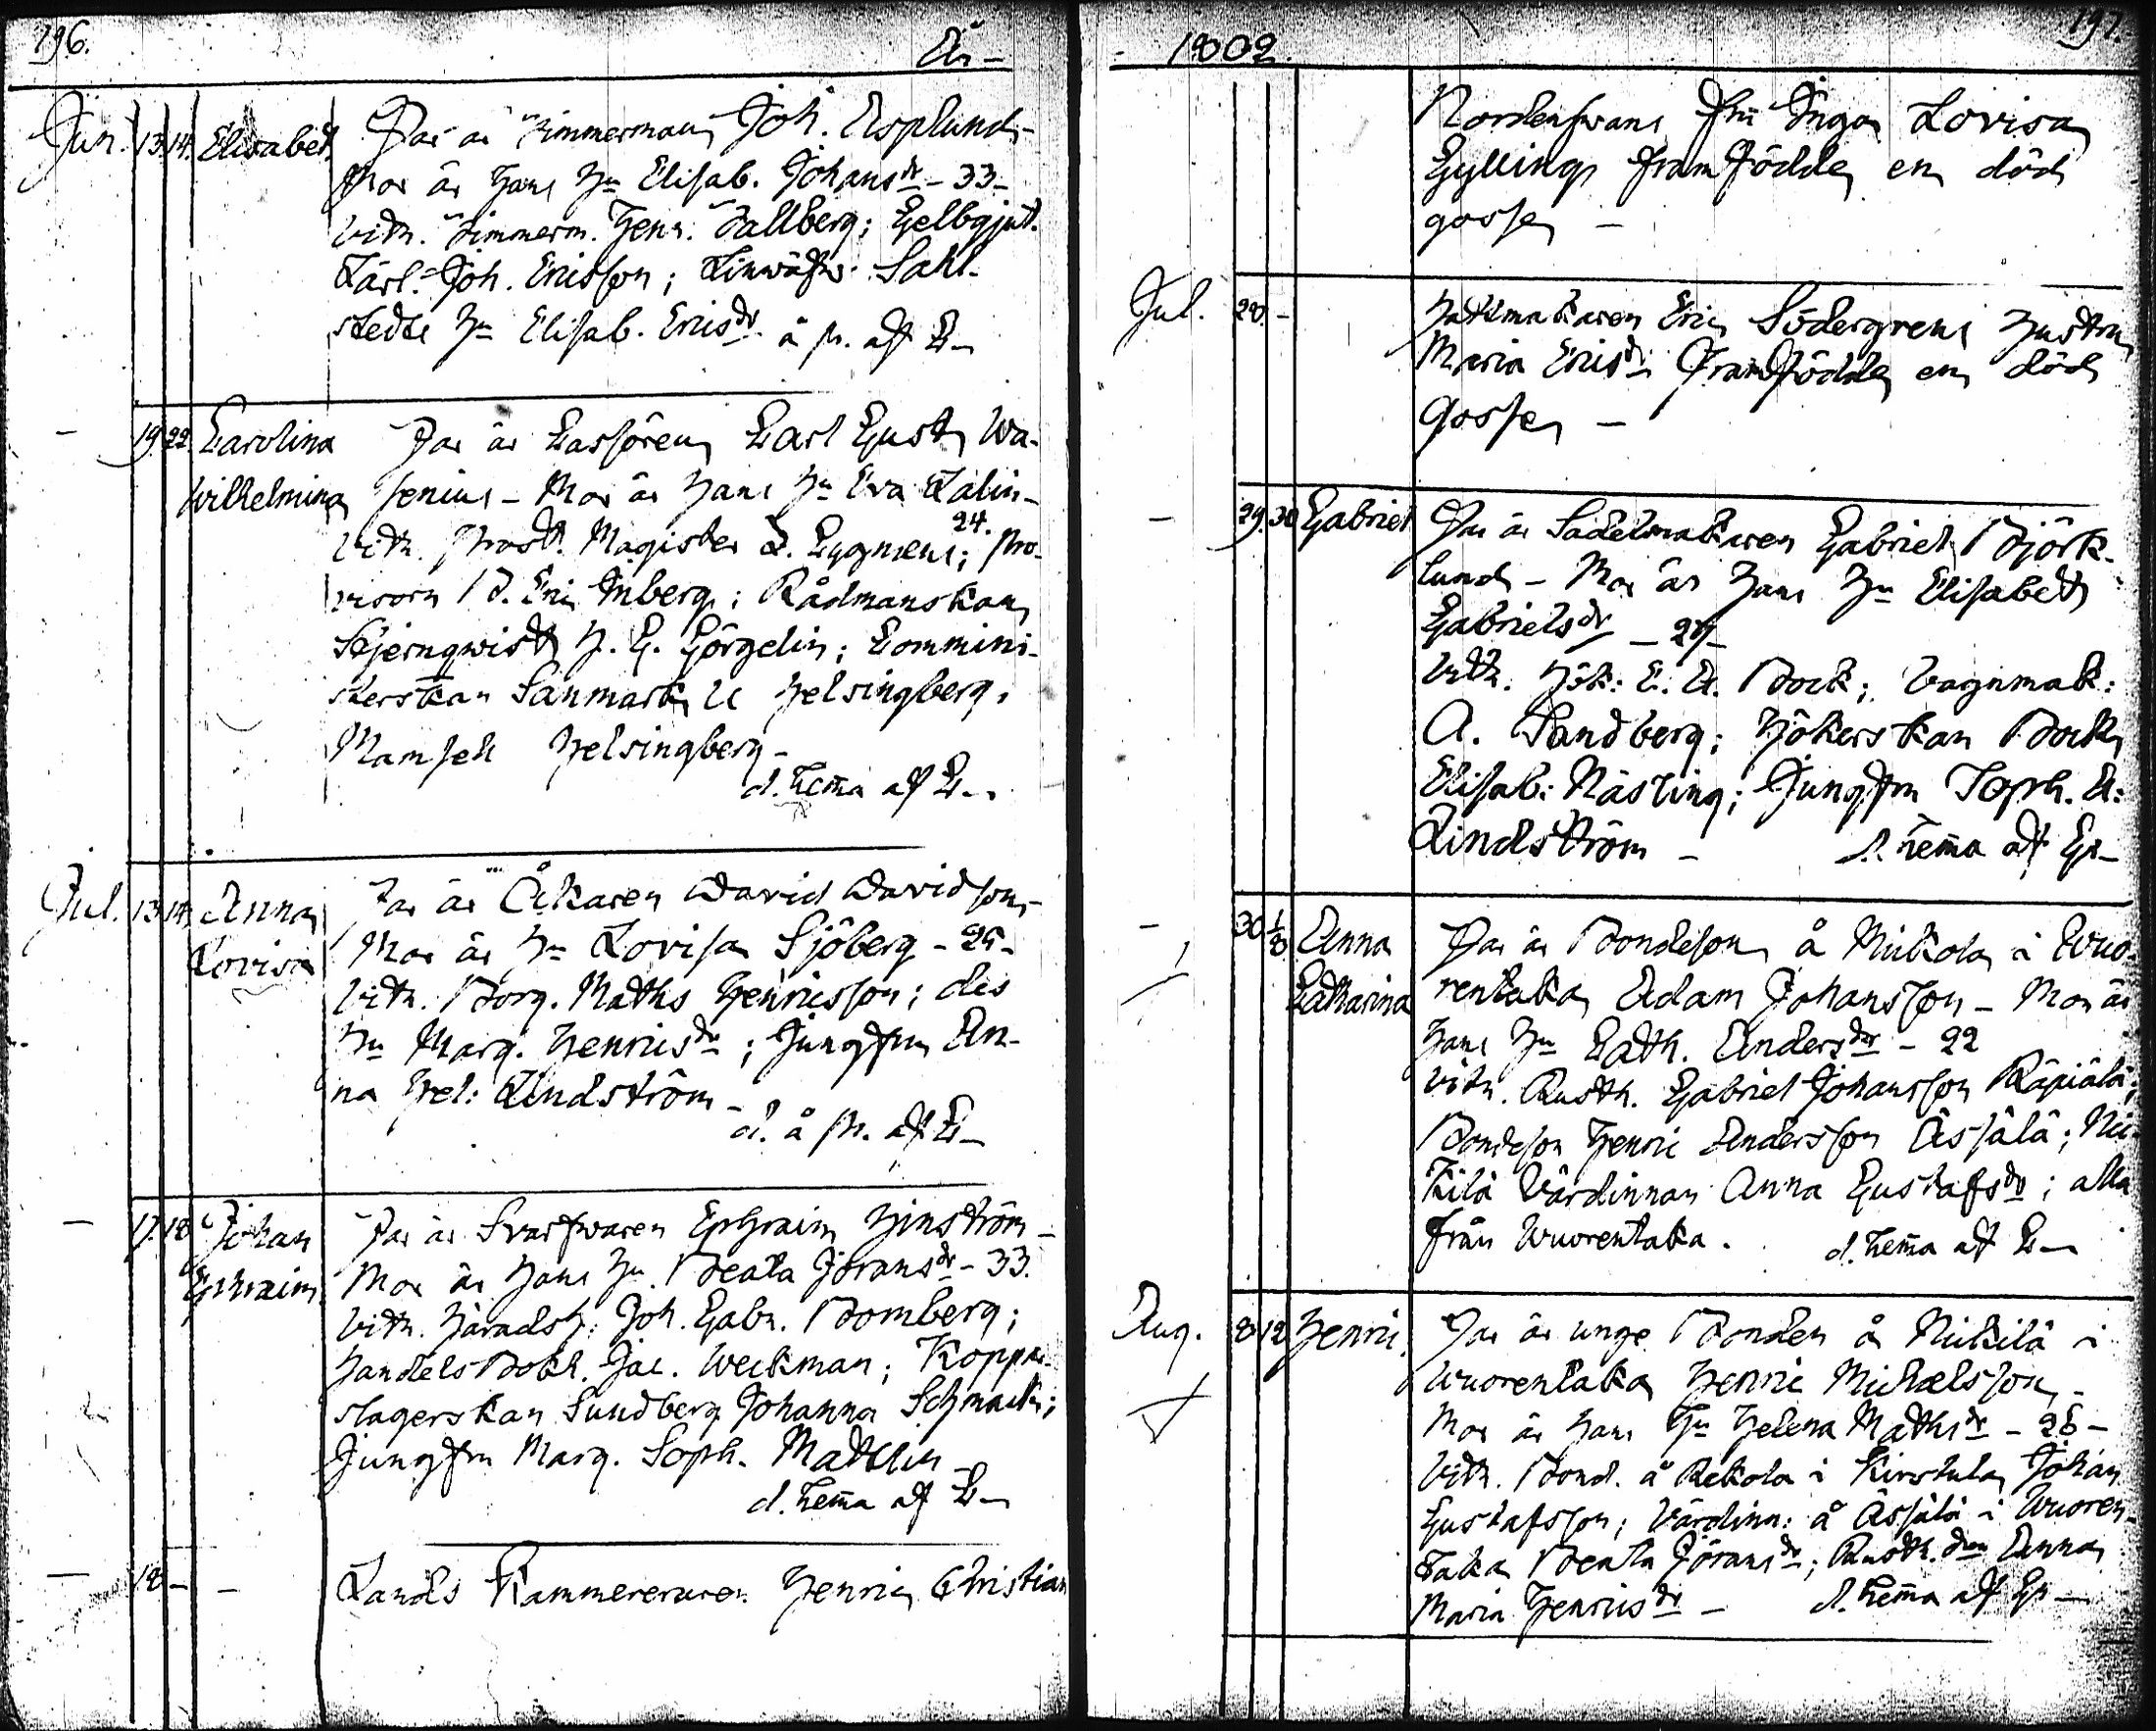 196.
År -
Jun. 13. 14. Elisabet Far är Timmerman Joh. Asplund -
Mor är Hans Hu Elisab. Johansdr - 33 -
Vittn. Timmerm. Henr. Tallberg; Gelbgjut.
Lärl. Joh. Ericsson; Linwäfw. Sahl-
stedts Hu Elisab. Ericsdr å p. af C -
- 19. 22. Carolina Far är Cassören Carl Gust. Wa-
Wilhelmina senius - Mor är Hans Hu Eva Lalin -
24.
Vittn. Prost. Magister L. Lygnens; Pro-
visorn P. Eric Inberg; Rådmanskan
Stjernqwist H. G. Görgelin; Commini-
sterskan Sanmark U Helsingberg,
Mamsell Helsingberg -
d. hema af C -
Jul. 13. 14. Anna Far är Åkaren David Davidson -
Lovisa Mor är Hu Lovisa Sjöberg - 25 -
Vittn. Borg. Matths Henricsson; des
Hu Marg. Henricsdr; Jungfru An-
na Hel: Lindström -
d. å p. af C -
- 17. 18. Johan Far är Svarfwaren Ephraim Hinström -
Ephraim. Mor är Hans Hu Beata Jöransdr - 33.
Vittn. Häradsh: Joh. Gabr. Bomberg;
Handels Bokh. Jac. Weckman; Koppar-
slagerskan Sundberg Johanna Schmack;
Jungfru Marg. Soph. Matllin -
d. hema af C -
- 18 - - Lands Kammereraren Henric Christian
- 1802.
197.
Nordenswans fru Inga Lovisa
Gyllings framfödde en död
gosse -
Jul. 28. - Hattmakaren Eric Södergrens Hustru
Maria Ericsdr framfödde en död
Gosse -
- 29. 30 Gabriel Far är Sadelmakaren Gabriel Björk-
lund - Mor är Hans Hu Elisabeth
Gabrielsdr - 27 -
Vittn. Hök: E. A. Bock; Vagnmak:
A. Sandberg; Hökerskan Bock
Elisab: Näsling; Jungfru Soph. A:
Lindström - d. hema af Gr -
- 30 1/8 Anna Far är Bondeson å Nickola i Wuo-
Catharina rentaka Adam Johansson - Mor är
Hans Hu Cath. Andersdr - 22
Vittn. Rusth. Gabriel Johansson Räpiälä;
Bondeson Henric Andersson Ässälä; Nic-
kilä Värdinnan Anna Gustafsdr; alla
från Wuorentaka. d. hema af C -
Aug. 8 12 Henric. Far är unge Bonden å Nickilä i
Wuorentaka Henric Michelsson -
Mor är Hans Hu Helena Mathsdr - 28 -
Vittn. Bond. å Rekola i Kirstula Johan
Gustafsson; Värdinn: å Ässälä i Wuoren-
taka Beata Jöransdr; Rusth. dren Anna
Maria Henricsdr - d. hema af Gr -